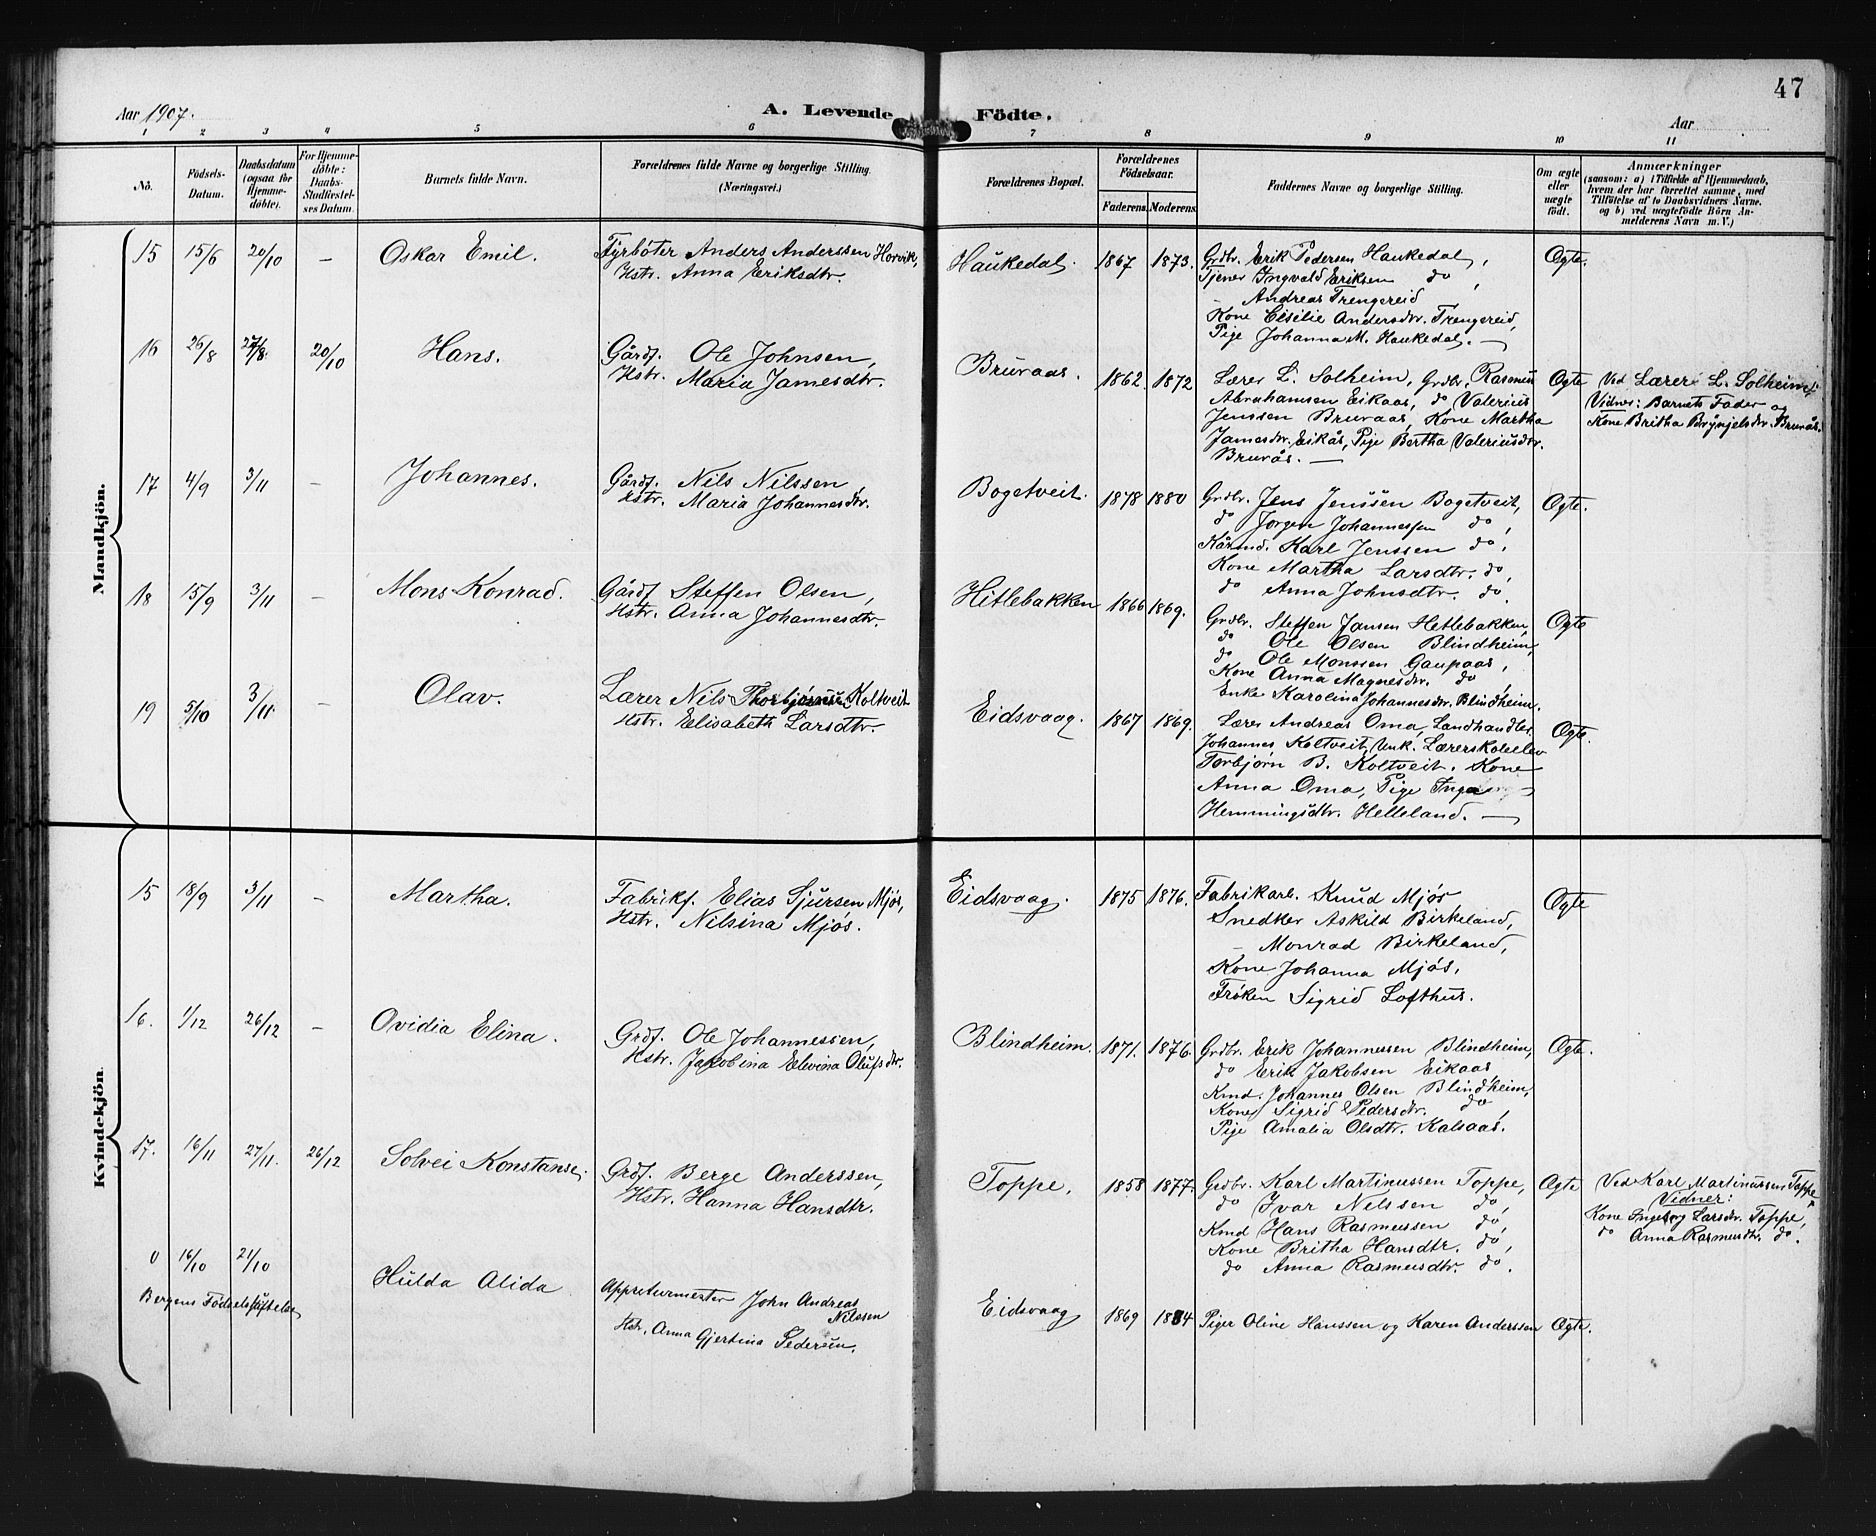 47
Aar 1907. A. Levende Födte. Aar
1 2 3 4 5 6 7 8 9 10 11
No. Födsels-Datum. Daabsdatum (ogsaa for Hjemme-döbte). For Hjemme-döbte: Daabs-Stadfæstel-ses Datum. Barnets fulde Navn. Forældrenes fulde Navne og borgerlige Stilling. (Næringsvei.) Forældrenes Bopæl. Forældrenes Födselsaar. Faderens. Moderens. Faddernes Navne og borgerlige Stilling. Om ægte eller uægte födt. Anmærkninger (saasom: a) i Tilfælde af Hjemmedaab, hvem der har forrettet samme, med Tilföielse af to Daabsvidners Navne, og b) ved uægtefödte Börn An-melderens Navn m. V.)
Mandkjön.
15 15/6 20/10 – Oskar Emil. Fyrböter Anders Anderssen Horvik, Haukedal. 1867 1873. Grdbr. Erik Pedersen Haukedal, Ægte.
Hstr. Anna Eriksdtr. Tjener Ingvald Eriksen do,
– Andreas Trengereid
Kone Cisilie Andersdtr. Trengereid,
Pige Johanna M. Haukedal. —
16 26/8 27/8. 20/10 Hans. Gårdf. Ole Johnsen, Bruraas. 1862 1872 Lærer L. Solheim, Grdbr. Rasmus Ægte Ved Lærer L. Solheim.
Hstr. Maria Jamesdtr. Abrahamsen Eikaas, do Valerius Vidner: Barnets Fader og
Jenssen Bruraas, Kone Martha Kone Britha Brynjelsdtr. Brurås.
Jamesdtr. Eikås, Pige Bertha Valeriusdtr.
Brurås. —
17 4/9 3/11 – Johannes. Gårdf. Nils Nilssen, Bogetveit. 1878 1880 Grdbr. Jens Jenssen Bogetveit, Ægte.
Hstr. Maria Johannesdtr. do Jørgen Johannessen do,
Kårmd. Karl Jenssen do,
Kone Martha Larsdtr. do,
do Anna Johnsdtr. do.
18 15/9 3/11 – Mons Konrad. Gårdf. Steffen Olsen, Hitlebakken 1866 1869. Grdbr. Steffen Jansen Hetlebakken, Ægte
Hstr. Anna Johannesdtr. do Ole Olsen Blindheim,
do Ole Monssen Gaupaas,
Kone Anna Magnesdtr. do
Enke Karolina Johannesdtr. Blindheim.
19 5/10 3/11. – Olav. Lærer Nils Thorbjørnsen Koltveit Eidsvaag. 1867 1869. Lærer Andreas Oma, Landhandler Ægte.
Hstr. Elisabeth Larsdtr. Johannes Koltveit, Unk. Lærerskoleelev
Torbjørn B. Koltveit. Kone
Anna Oma, Pige Inga
Hemmingsdtr. Helleland. —
Kvindekjön
15 18/9 3/11 – Martha. Fabrikf. Elias Sjursen Mjøs, Eidsvaag. 1875 1876. Fabrikarb. Knud Mjøs Ægte
Hstr. Nilsina Mjøs. Snedker Askild Birkeland,
– Monrad Birkeland,
Kone Johanna Mjøs,
Frøken Sigrid Lofthus.
16. 1/12 26/12 – Ovidia Elina. Grdf. Ole Johannessen, Blindheim. 1871. 1876. Grdbr. Erik Johannessen Blindheim, Ægte.
Hstr. Jakobina Elvina Olufsdtr. do Erik Jakobsen Eikaas,
Kmd. Johannes Olsen Blindheim,
Kone Sigrid Pedersdtr. do,
Pige Amalia Olsdtr. Kalsaas.
17. 16/11 27/11. 26/12 Solvei Konstanse. Grdf. Berge Anderssen, Toppe. 1858 1877. Grdbr. Karl Martinussen Toppe, Ægte Ved Karl Martinussen Toppe
Hstr. Hanna Hansdtr. do Ivar Nilssen do, Vidner:
Kmd Hans Rasmussen do, Kone Ingeborg Larsdtr. Toppe,
Kone Britha Hansdtr. do, do Anna Rasmusdtr. do.
do Anna Rasmusdtr. do.
0 16/10 21/10 Hulda Alida Appreturmester John Andreas Nilssen Eidsvaag 1869 1884 Piger Oline Hanssen og Karen Anderssen Ægte.
Bergens Födselsstiftelse Hstr. Anna Gjertina Pedersen.